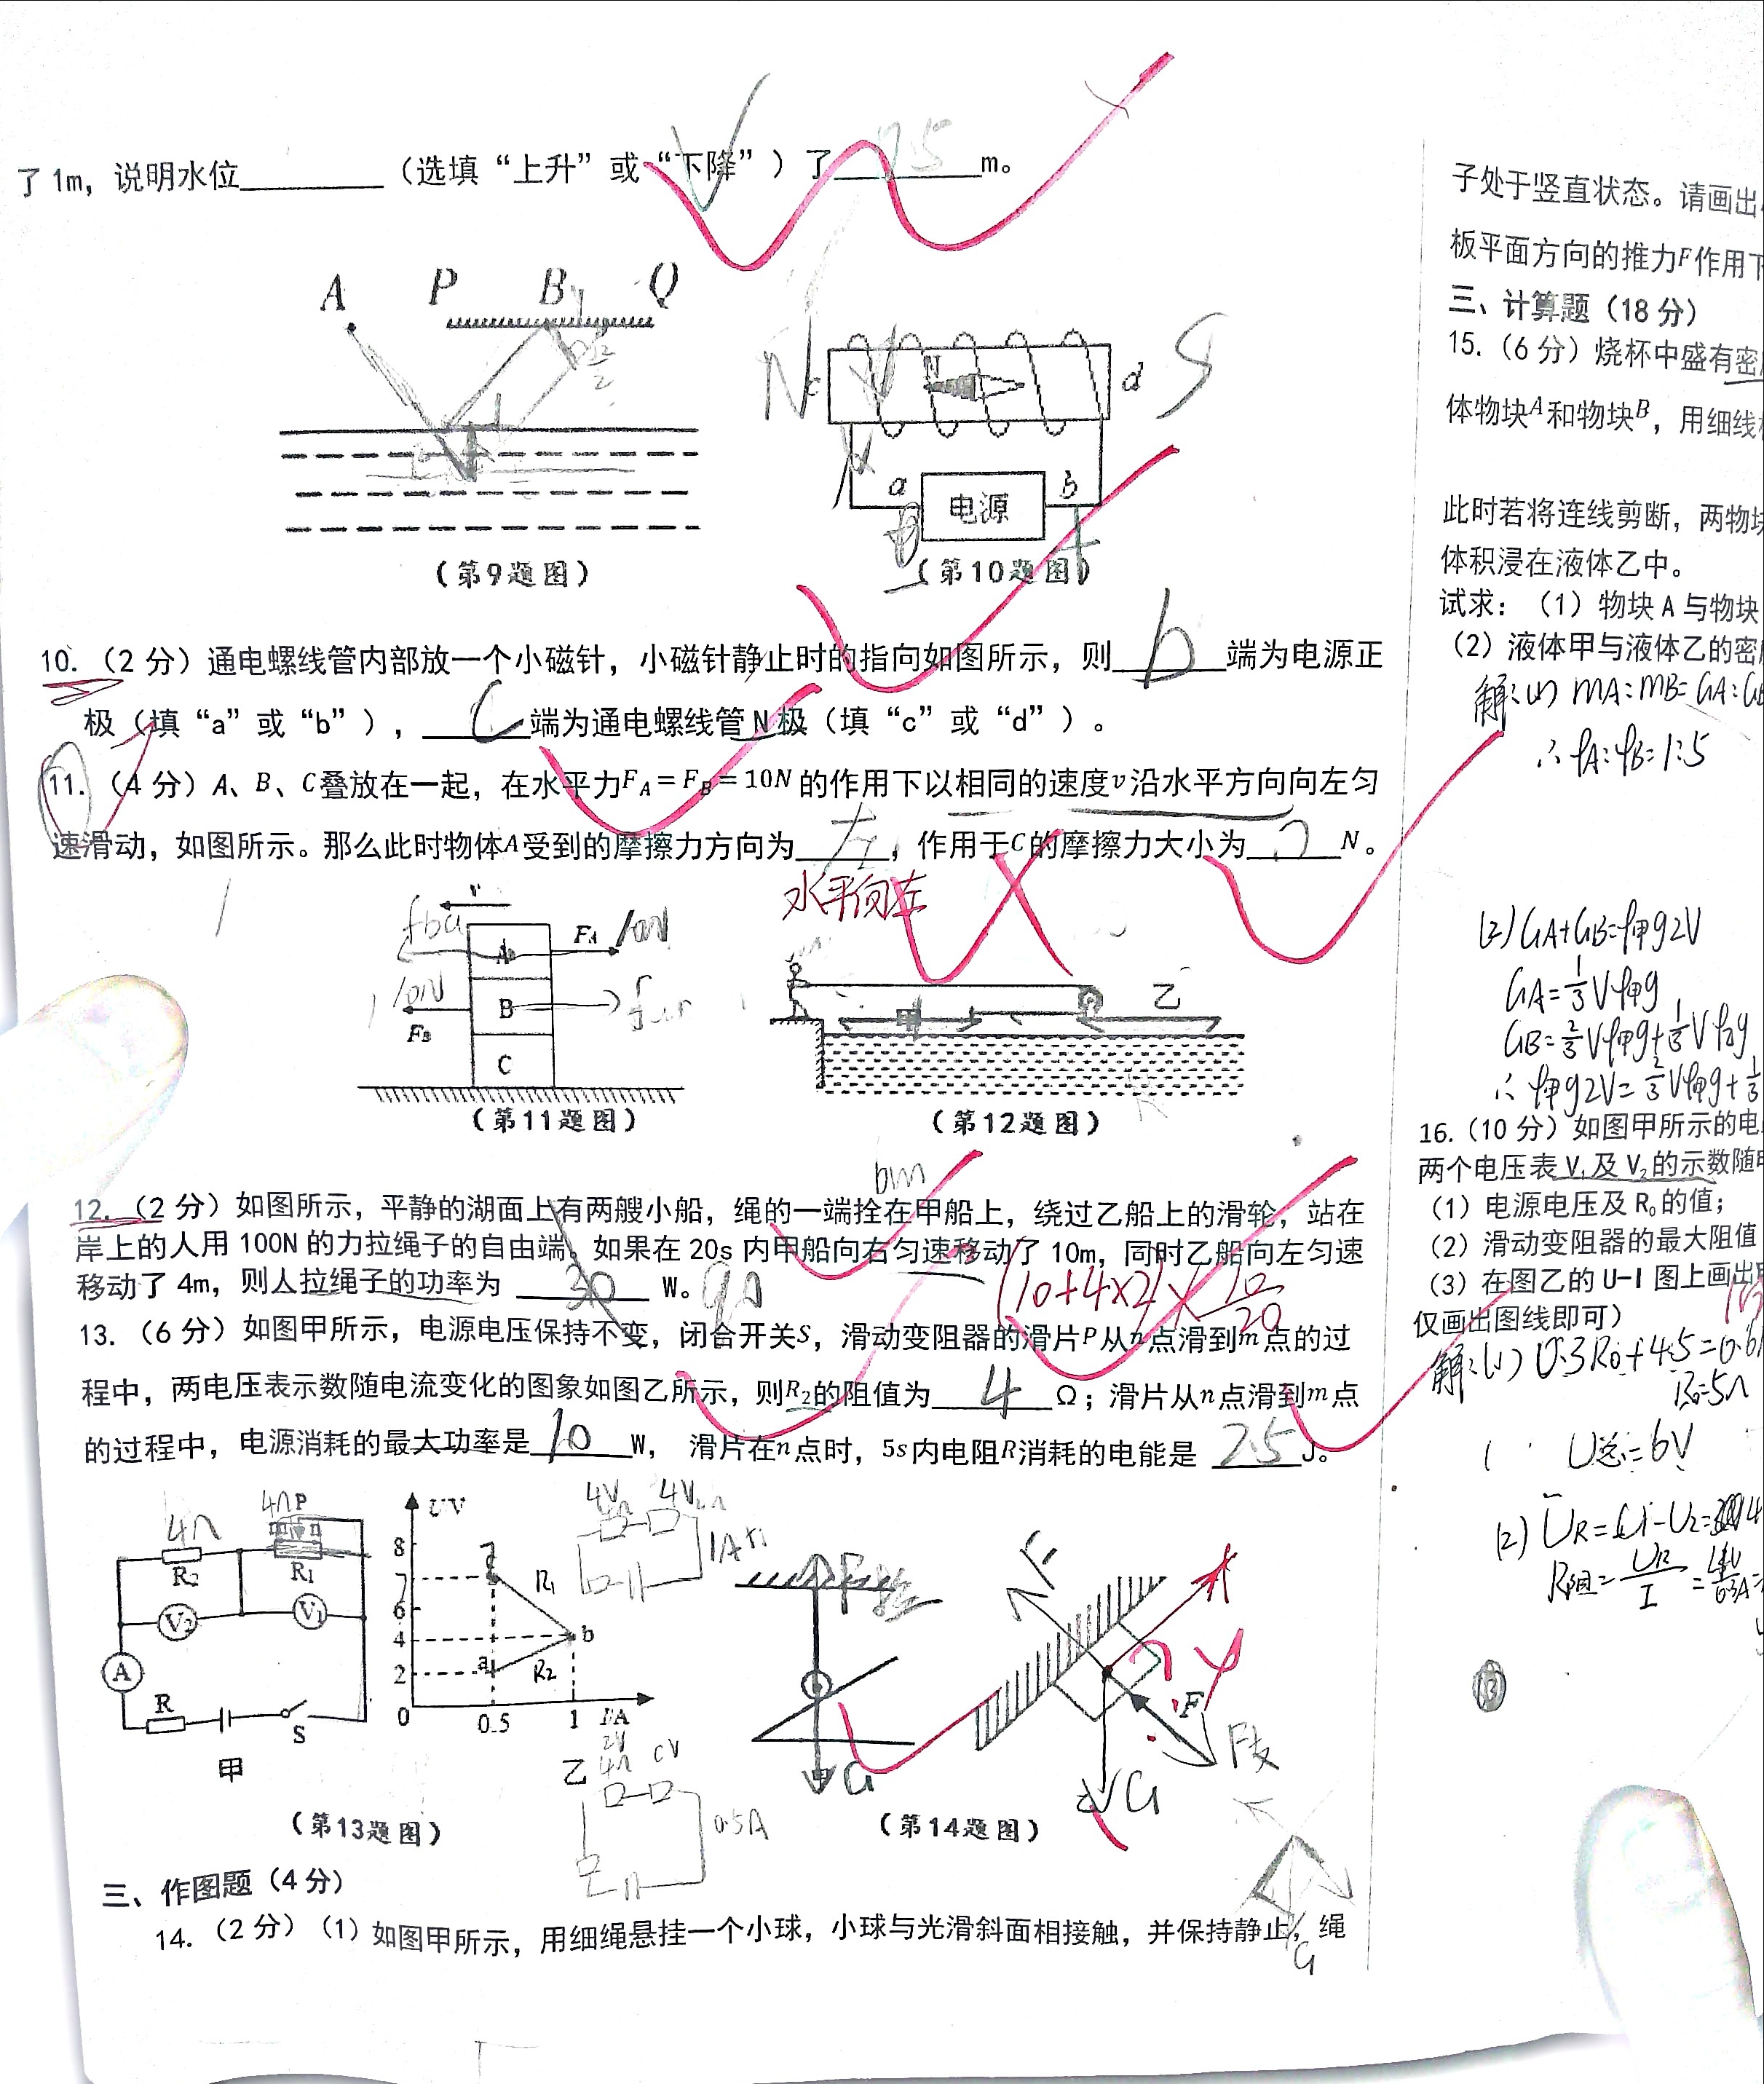 了1m，说明水位________（选填“上升”或“下降”）了________m。
A P B Q
N c N d S
a 电源 b
（第9题图）
（第10题图）
10.（2分）通电螺线管内部放一个小磁针，小磁针静止时的指向如图所示，则 b 端为电源正
极（填“a”或“b”），c 端为通电螺线管N极（填“c”或“d”）。
11.（4分）A、B、C叠放在一起，在水平力FA=FB=10N的作用下以相同的速度v沿水平方向向左匀
速滑动，如图所示。那么此时物体A受到的摩擦力方向为 左 ，作用于C的摩擦力大小为____N。
水平向左
v
A FA 10N
10N B
FB
C
乙
（第11题图）
（第12题图）
12.（2分）如图所示，平静的湖面上有两艘小船，绳的一端拴在甲船上，绕过乙船上的滑轮，站在
岸上的人用100N的力拉绳子的自由端。如果在20s内甲船向右匀速移动了10m，同时乙船向左匀速
移动了4m，则人拉绳子的功率为 30 W。90
(10+4×2)×10/20
13.（6分）如图甲所示，电源电压保持不变，闭合开关S，滑动变阻器的滑片P从n点滑到m点的过
程中，两电压表示数随电流变化的图象如图乙所示，则R2的阻值为 4 Ω；滑片从n点滑到m点
的过程中，电源消耗的最大功率是 10 W， 滑片在n点时，5s内电阻R消耗的电能是 2.5 J。
4Ω 4Ω P
R2 R1
V2 V1
A
R S
甲
U/V
8
7
6
4
2
0 0.5 1 I/A
a b R1 R2
乙
4V 4V
1A
0.5A
F G
F F支 G
（第13题图）
（第14题图）
三、作图题（4分）
14.（2分）（1）如图甲所示，用细绳悬挂一个小球，小球与光滑斜面相接触，并保持静止，绳
G
子处于竖直状态。请画出
板平面方向的推力F作用下
三、计算题（18分）
15.（6分）烧杯中盛有密
体物块A和物块B，用细线
此时若将连线剪断，两物块
体积浸在液体乙中。
试求：（1）物块A与物块
（2）液体甲与液体乙的密
解:(1) mA:mB=GA:G
∴ρA:ρB=1:5
(2) GA+GB=ρ甲g2V
GA=1/3Vρ甲g
GB=2/3Vρ甲g+1/3Vρ乙g
∴ρ甲g2V=2/3Vρ甲g+1/3
16.（10分）如图甲所示的电
两个电压表V1及V2的示数随
（1）电源电压及R0的值；
（2）滑动变阻器的最大阻值
（3）在图乙的U-I图上画出
仅画出图线即可）
解:(1) 0.3R0+4.5=0.6
R0=5Ω
U总=6V
R阻=UR/I